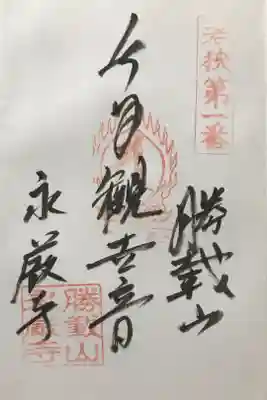 若狭第一番
勝載山
觀世音
永厳寺
勝載山
永厳寺